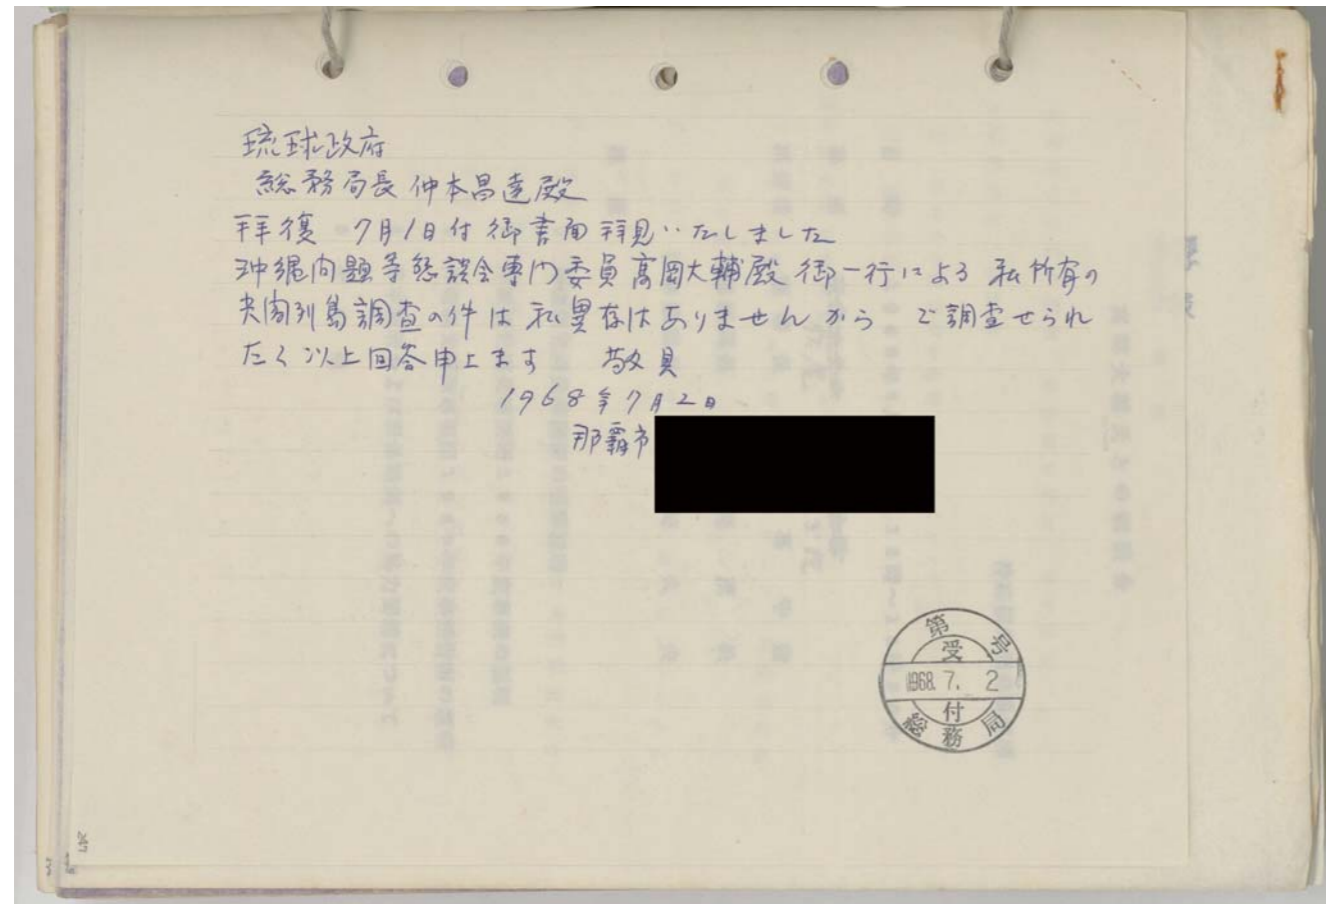 琉球政府
総務局長 仲本昌達殿
拝復 7月1日付 御書面拝見いたしました
沖縄問題等懇談会専門委員高岡大輔殿御一行による 私所有の
尖閣列島調査の件は 私異存はありませんから ご調査せられ
たく以上回答申上ます 敬具
1968年7月2日
那覇市
第 号
受
1968. 7. 2
付
総務局